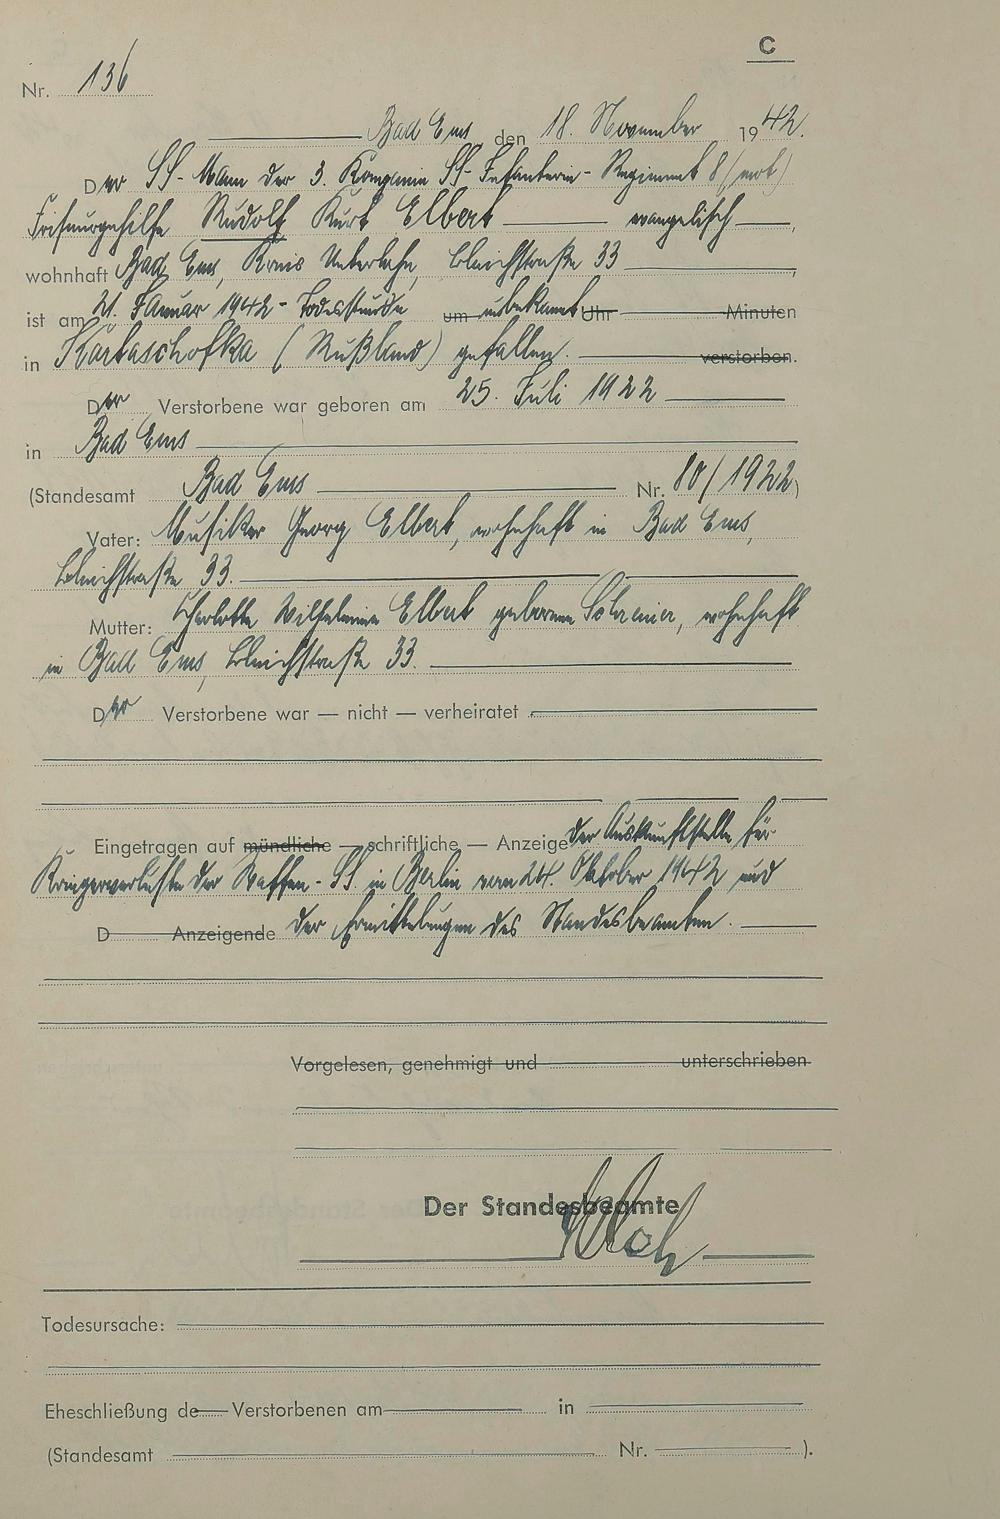 C
Nr. 136
Bad Ems den 18. November 1942.
Der SS-Mann der 3. Kompanie SS-Infanterie-Regiment 8 (mot)
Friseurgehilfe Rudolf Kurt Elbert — evangelisch —,
wohnhaft Bad Ems, Kreis Unterlahn, Bleichstraße 33
ist am 21. Januar 1942 - Todesstunde um unbekannt Uhr Minuten
in Kartaschofka (Rußland) gefallen. verstorben.
Der Verstorbene war geboren am 25. Juli 1922
in Bad Ems
(Standesamt Bad Ems Nr. 80/1922)
Vater: Musiker Georg Elbert, wohnhaft in Bad Ems,
Bleichstraße 33.
Mutter: Charlotte Wilhelmine Elbert geborene, wohnhaft
in Bad Ems, Bleichstraße 33.
Der Verstorbene war — nicht — verheiratet
Eingetragen auf mündliche — schriftliche — Anzeige der Auskunftstelle für
Kriegerverluste der Waffen-SS. in Berlin vom 24. Oktober 1942 und
D Anzeigende der Ermittelungen des Standesbeamten.
Vorgelesen, genehmigt und unterschrieben
Der Standesbeamte
Todesursache:
Eheschließung de Verstorbenen am in
(Standesamt Nr. ).